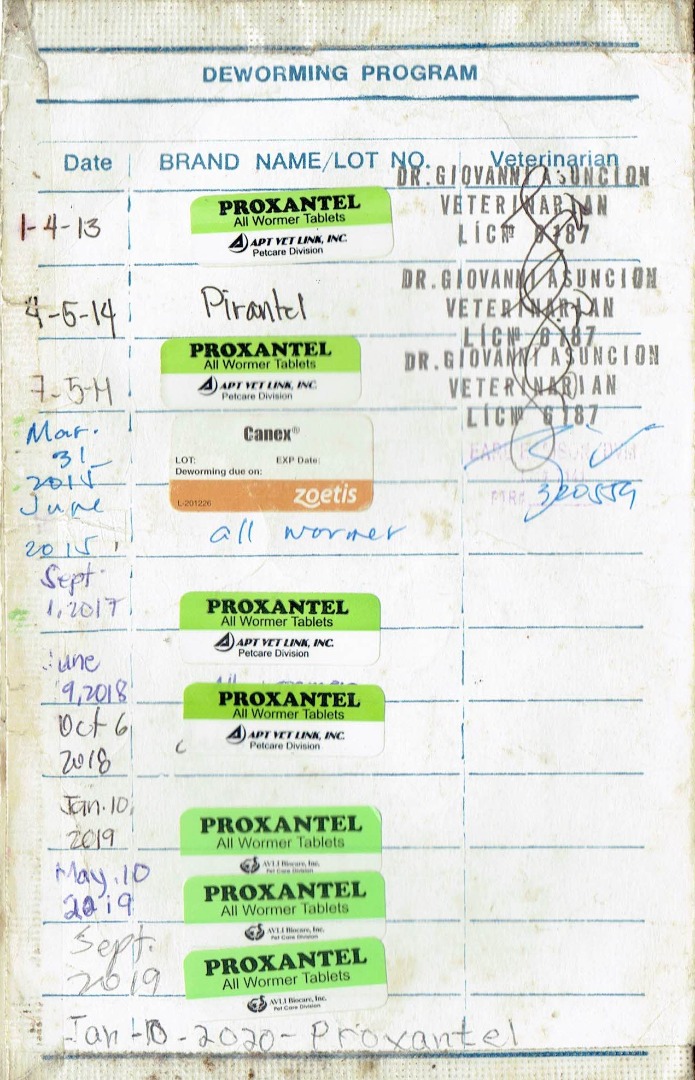 DEWORMING PROGRAM
Date BRAND NAME/LOT NO. Veterinarian
DR. GIOVANNI ASUNCION
VETERINARIAN
LICNº 6187
1-4-13
PROXANTEL
All Wormer Tablets
APT VET LINK, INC.
Petcare Division
DR. GIOVANNI ASUNCION
VETERINARIAN
LICNº 6187
4-5-14 Pirantel
DR. GIOVANNI ASUNCION
VETERINARIAN
LICNº 6187
7-5-14
PROXANTEL
All Wormer Tablets
APT VET LINK, INC.
Petcare Division
Mar.
31
2015
Canex®
LOT: EXP Date:
Deworming due on:
L-201226 zoetis
320559
June
2015 all wormer
Sept.
1, 2017
PROXANTEL
All Wormer Tablets
APT VET LINK, INC.
Petcare Division
June
9, 2018
Oct 6
2018
PROXANTEL
All Wormer Tablets
APT VET LINK, INC.
Petcare Division
Jan. 10,
2019
PROXANTEL
All Wormer Tablets
AVLI Biocare, Inc.
Pet Care Division
May. 10
2019
PROXANTEL
All Wormer Tablets
AVLI Biocare, Inc.
Pet Care Division
Sept.
2019
PROXANTEL
All Wormer Tablets
AVLI Biocare, Inc.
Pet Care Division
Jan-10-2020-Proxantel